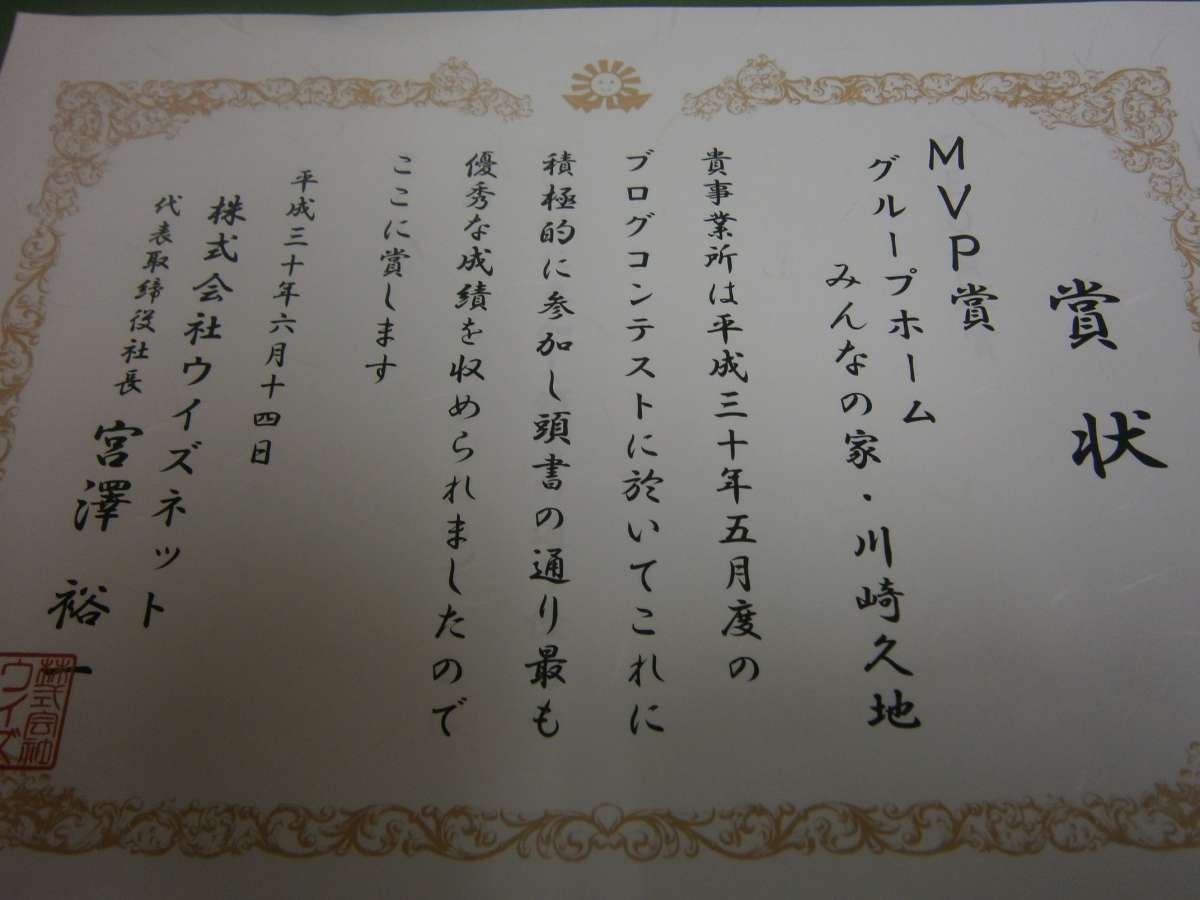 賞状
MVP賞
グループホーム
みんなの家・川崎久地
貴事業所は平成三十年五月度の
ブログコンテストに於いてこれに
積極的に参加し頭書の通り最も
優秀な成績を収められましたので
ここに賞します
平成三十年六月十四日
株式会社ウイズネット
代表取締役社長 宮澤 裕一
株式会社
ウイズ